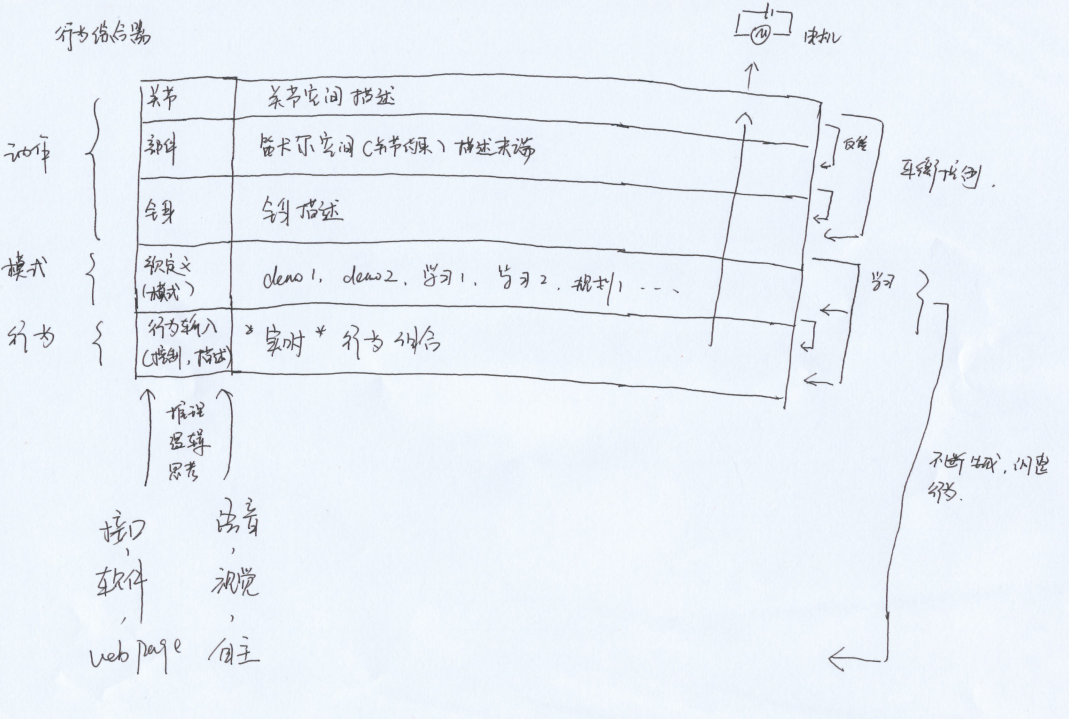 行为综合器
M 电机
关节 关节空间 描述
部件 笛卡尔空间(关节约束) 描述末端
反馈
动作
连续控制.
全身 全身 描述
模式
预定义 (模式)
demo 1, demo 2, 学习1, 学习2, 规划1 ....
学习
行为
行为输入 (控制, 描述)
*实时* 行为 组合
推理
逻辑
思考
不断生成, 闭建
行为.
接口, 语音,
软件, 视觉,
web page 自主